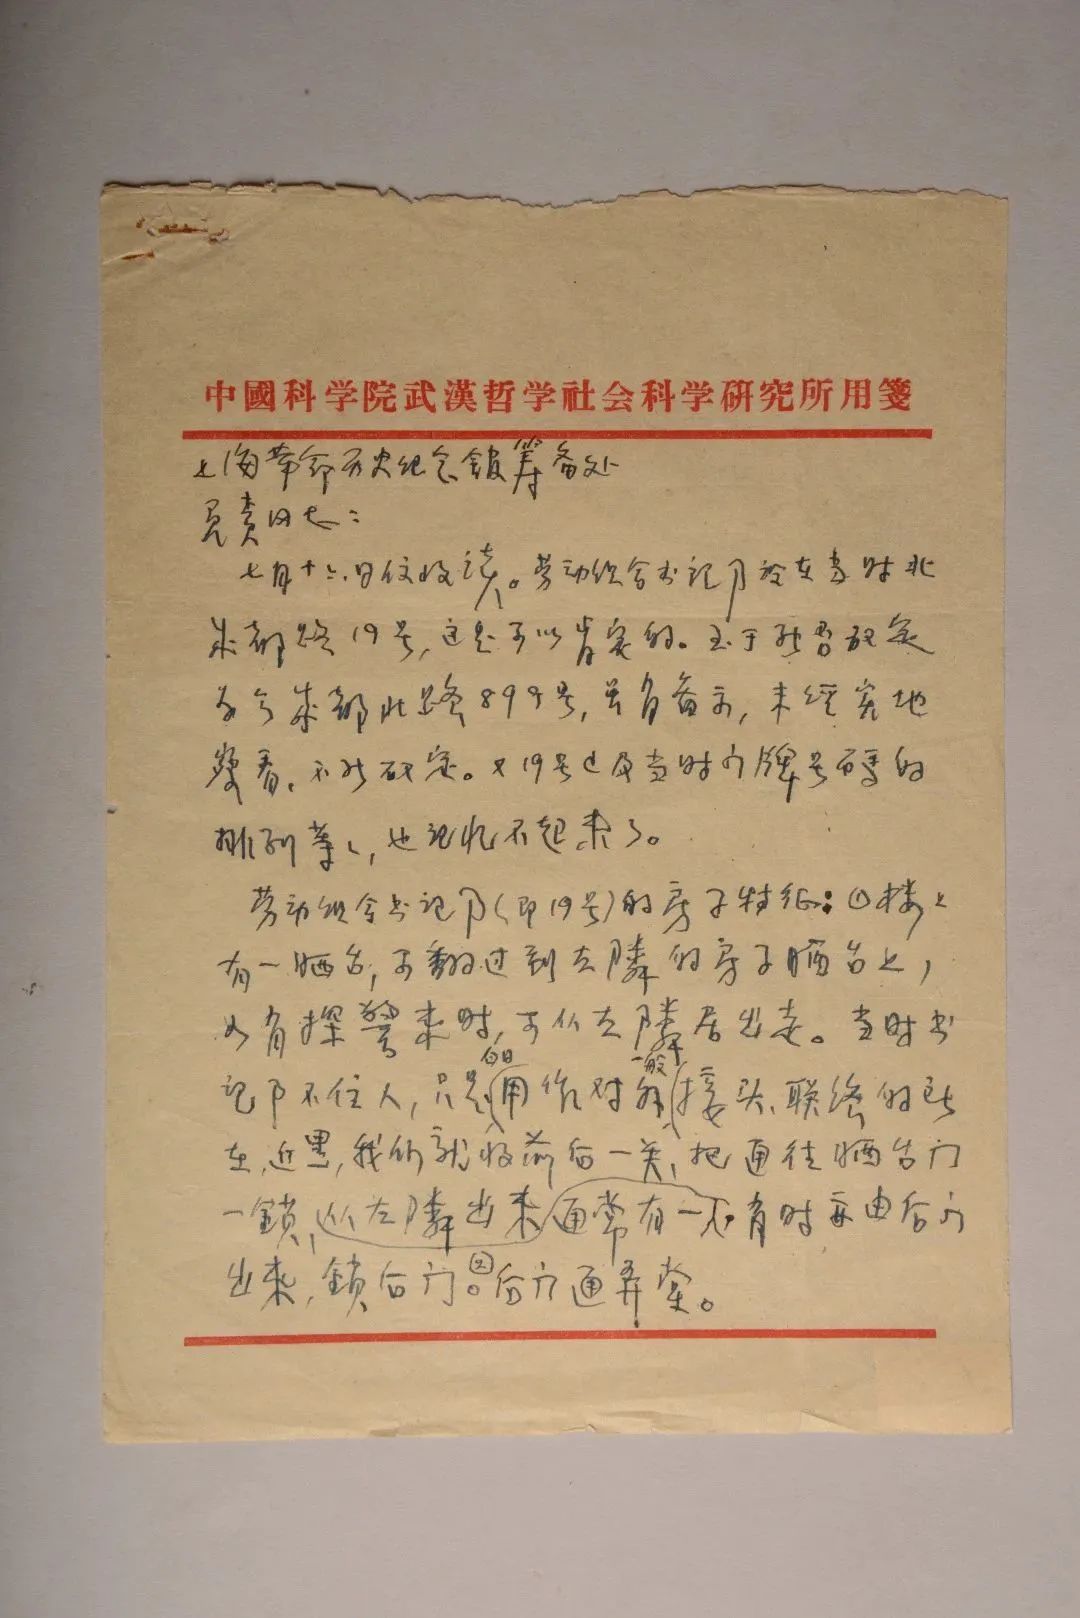 中國科学院武漢哲学社会科学研究所用箋
上海革命历史纪念館筹备处
负责同志：
七月十六日信收读。劳动组合书记部设在当时北
成都路19号，这是可以肯定的。至于能否确定
为今成都北路899号，虽有备示，未经实地
察看，不能确定。又19号已及当时门牌号碼的
排列等等，也记忆不起来了。
劳动组合书记部（即19号）的房子特征：①楼上
有一晒台，可翻过到左隣的房子晒台上，
如有探警来时，可从左隣居出走。当时书
白日 一般
记部不住人，只是用作对外接头、联络的所
在，近黑，我们就收前后一关，把通往晒台门
一鎖，从左隣出来通常有一 有时亦由后门
出来，鎖后门。因后门通弄堂。